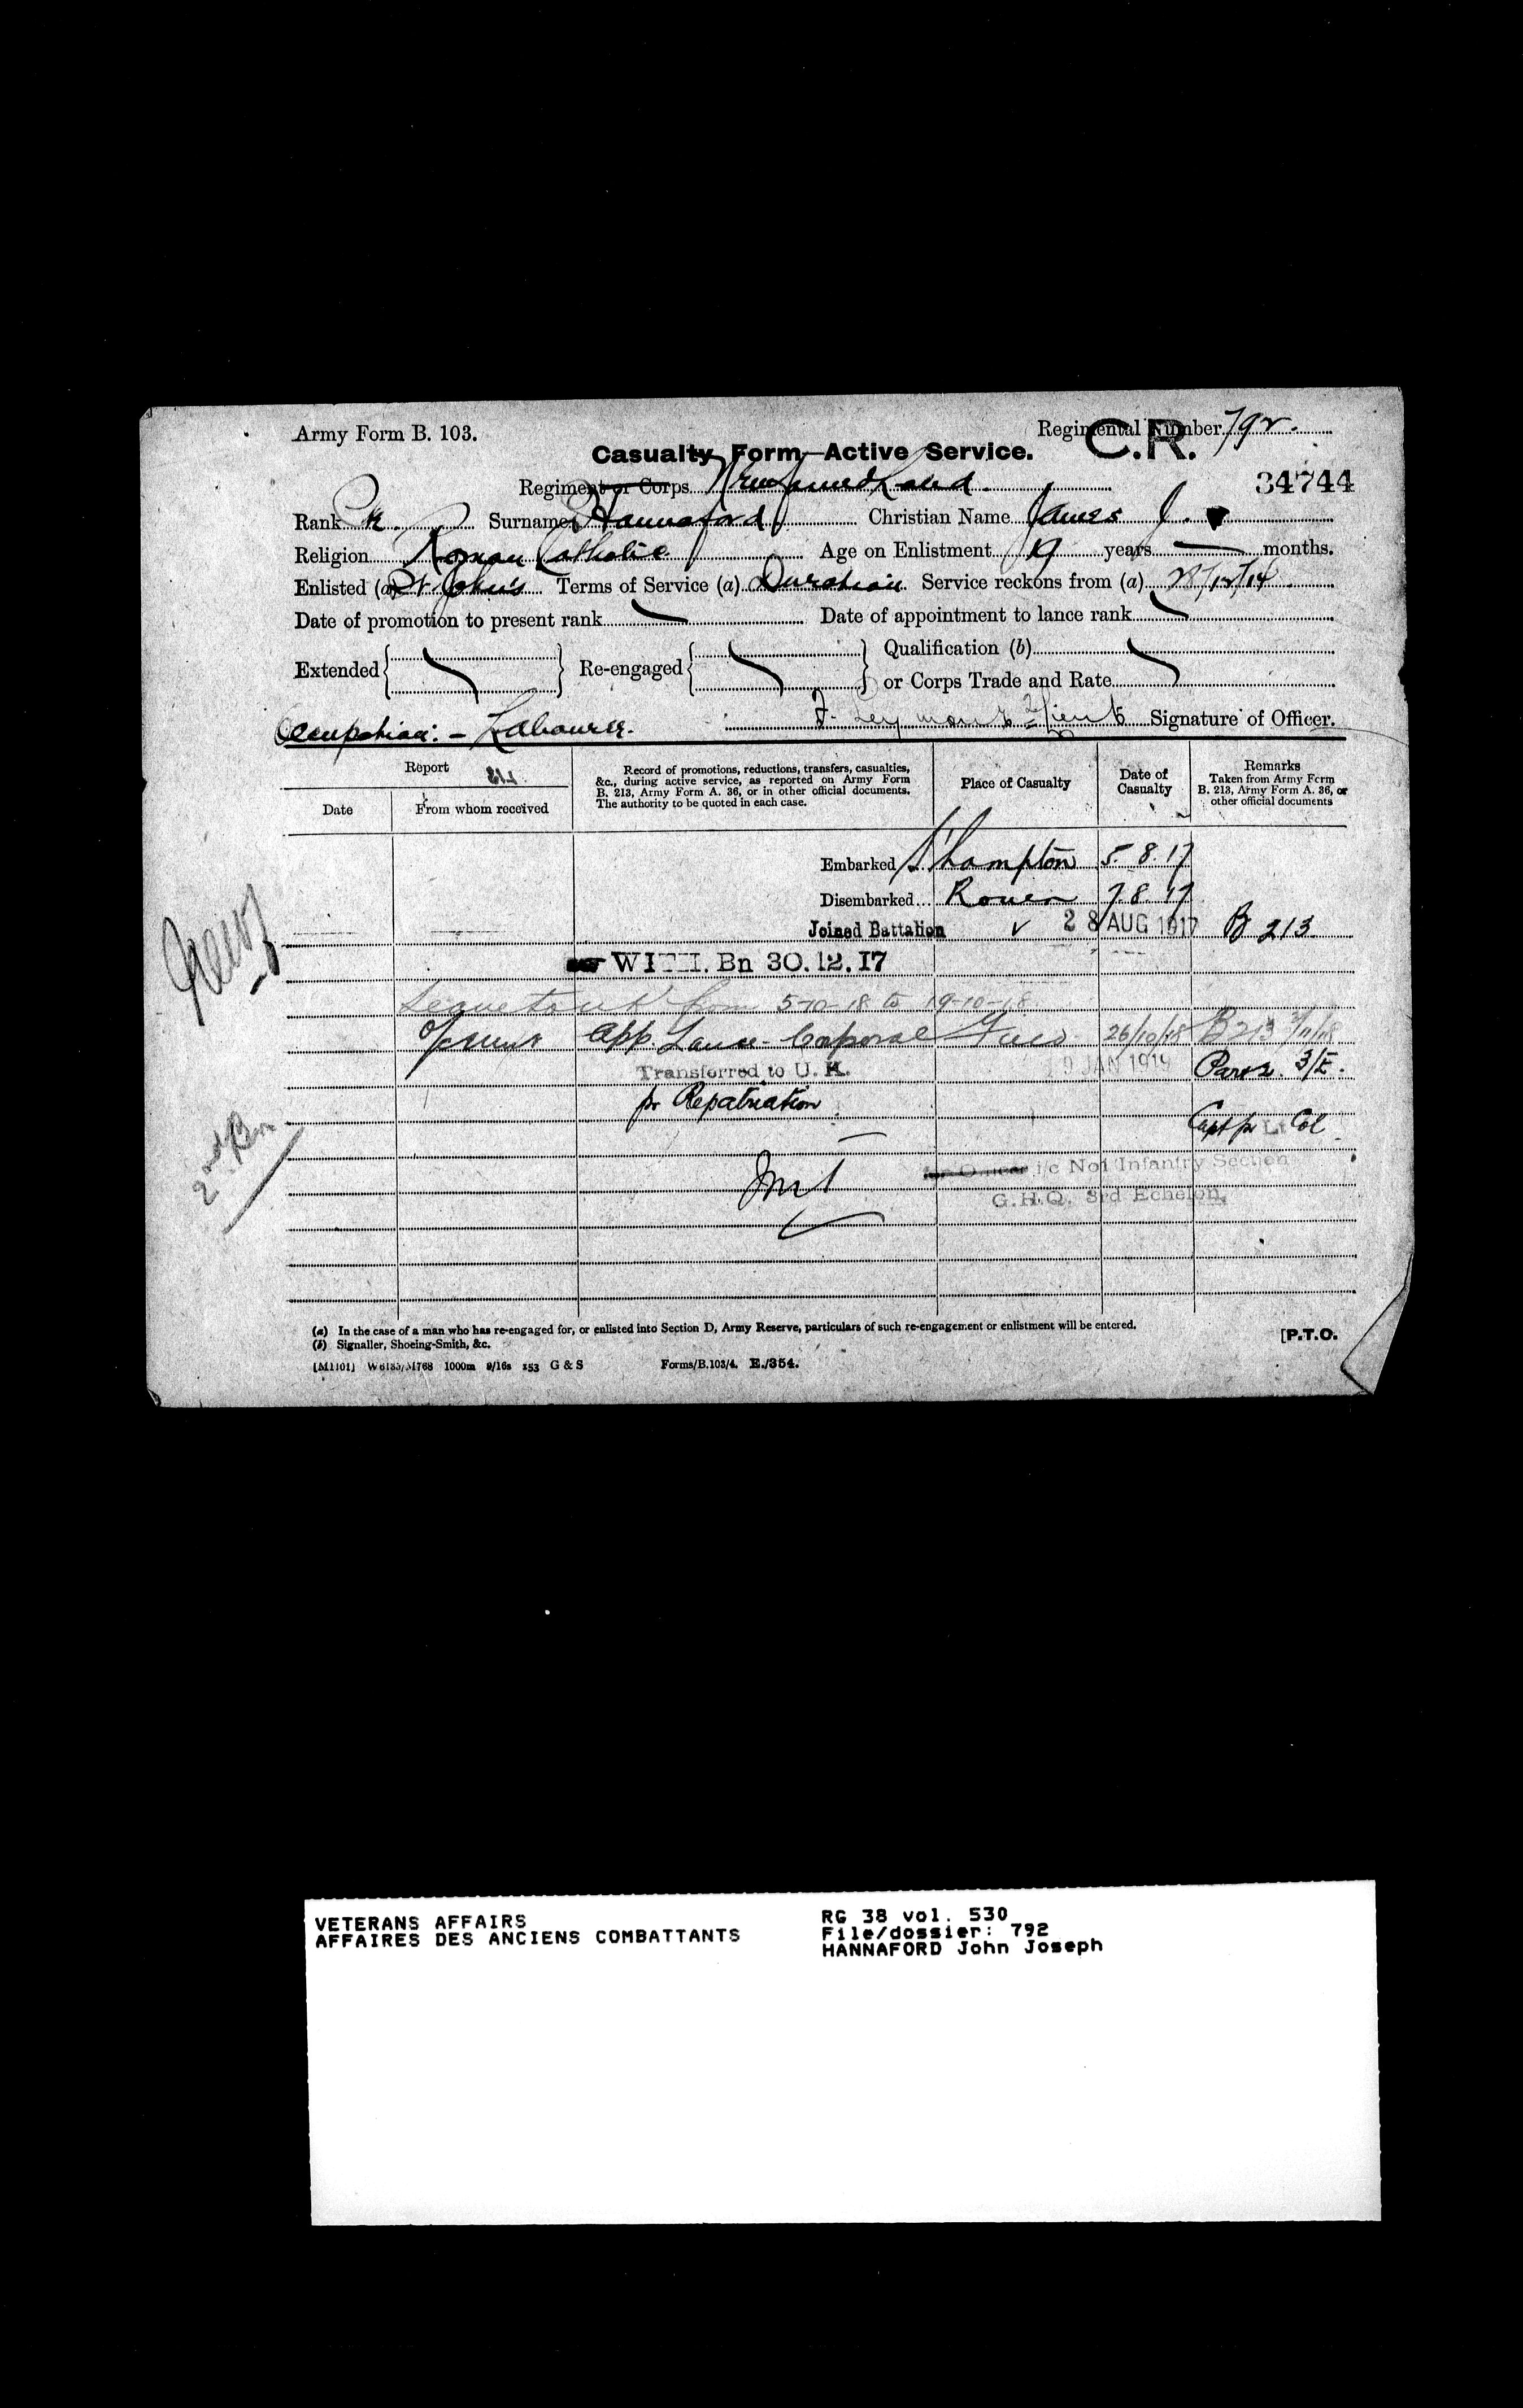 Army Form B. 103.
Regimental Number 792.
C.R.
Casualty Form—Active Service.
34744
Regiment or Corps Newfoundland
Rank Pte. Surname Hannaford Christian Name James J.
Religion Roman Catholic Age on Enlistment 19 years — months.
Enlisted (a) St John's Terms of Service (a) Duration Service reckons from (a) 28/12/14
Date of promotion to present rank Date of appointment to lance rank
Extended Re-engaged Qualification (b)
or Corps Trade and Rate
Occupation: - Labourer. Signature of Officer.
Report
Date
From whom received
Record of promotions, reductions, transfers, casualties, &c., during active service, as reported on Army Form B. 213, Army Form A. 36, or in other official documents. The authority to be quoted in each case.
Place of Casualty
Date of Casualty
Remarks
Taken from Army Form B. 213, Army Form A. 36, or other official documents
Embarked S'hampton 5.8.17
Disembarked... Rouen 7.8.17
Joined Battalion 28 AUG 1917 B 213
WITH. Bn 30.12.17
Leave to UK from 5-10-18 to 19-10-18
app. Lance-Corporal Field 26/10/18 B213 2/11/18
Transferred to U.K. 19 JAN 1919
for Repatriation
Capt for Lt Col
i/c No 1 Infantry Section
G.H.Q. 3rd Echelon.
2nd Bn
(a) In the case of a man who has re-engaged for, or enlisted into Section D, Army Reserve, particulars of such re-engagement or enlistment will be entered.
(b) Signaller, Shoeing-Smith, &c.
[P.T.O.
1000m 9/16s 353 G & S Forms/B.103/4. E./354.
VETERANS AFFAIRS
AFFAIRES DES ANCIENS COMBATTANTS
RG 38 vol. 530
File/dossier: 792
HANNAFORD John Joseph